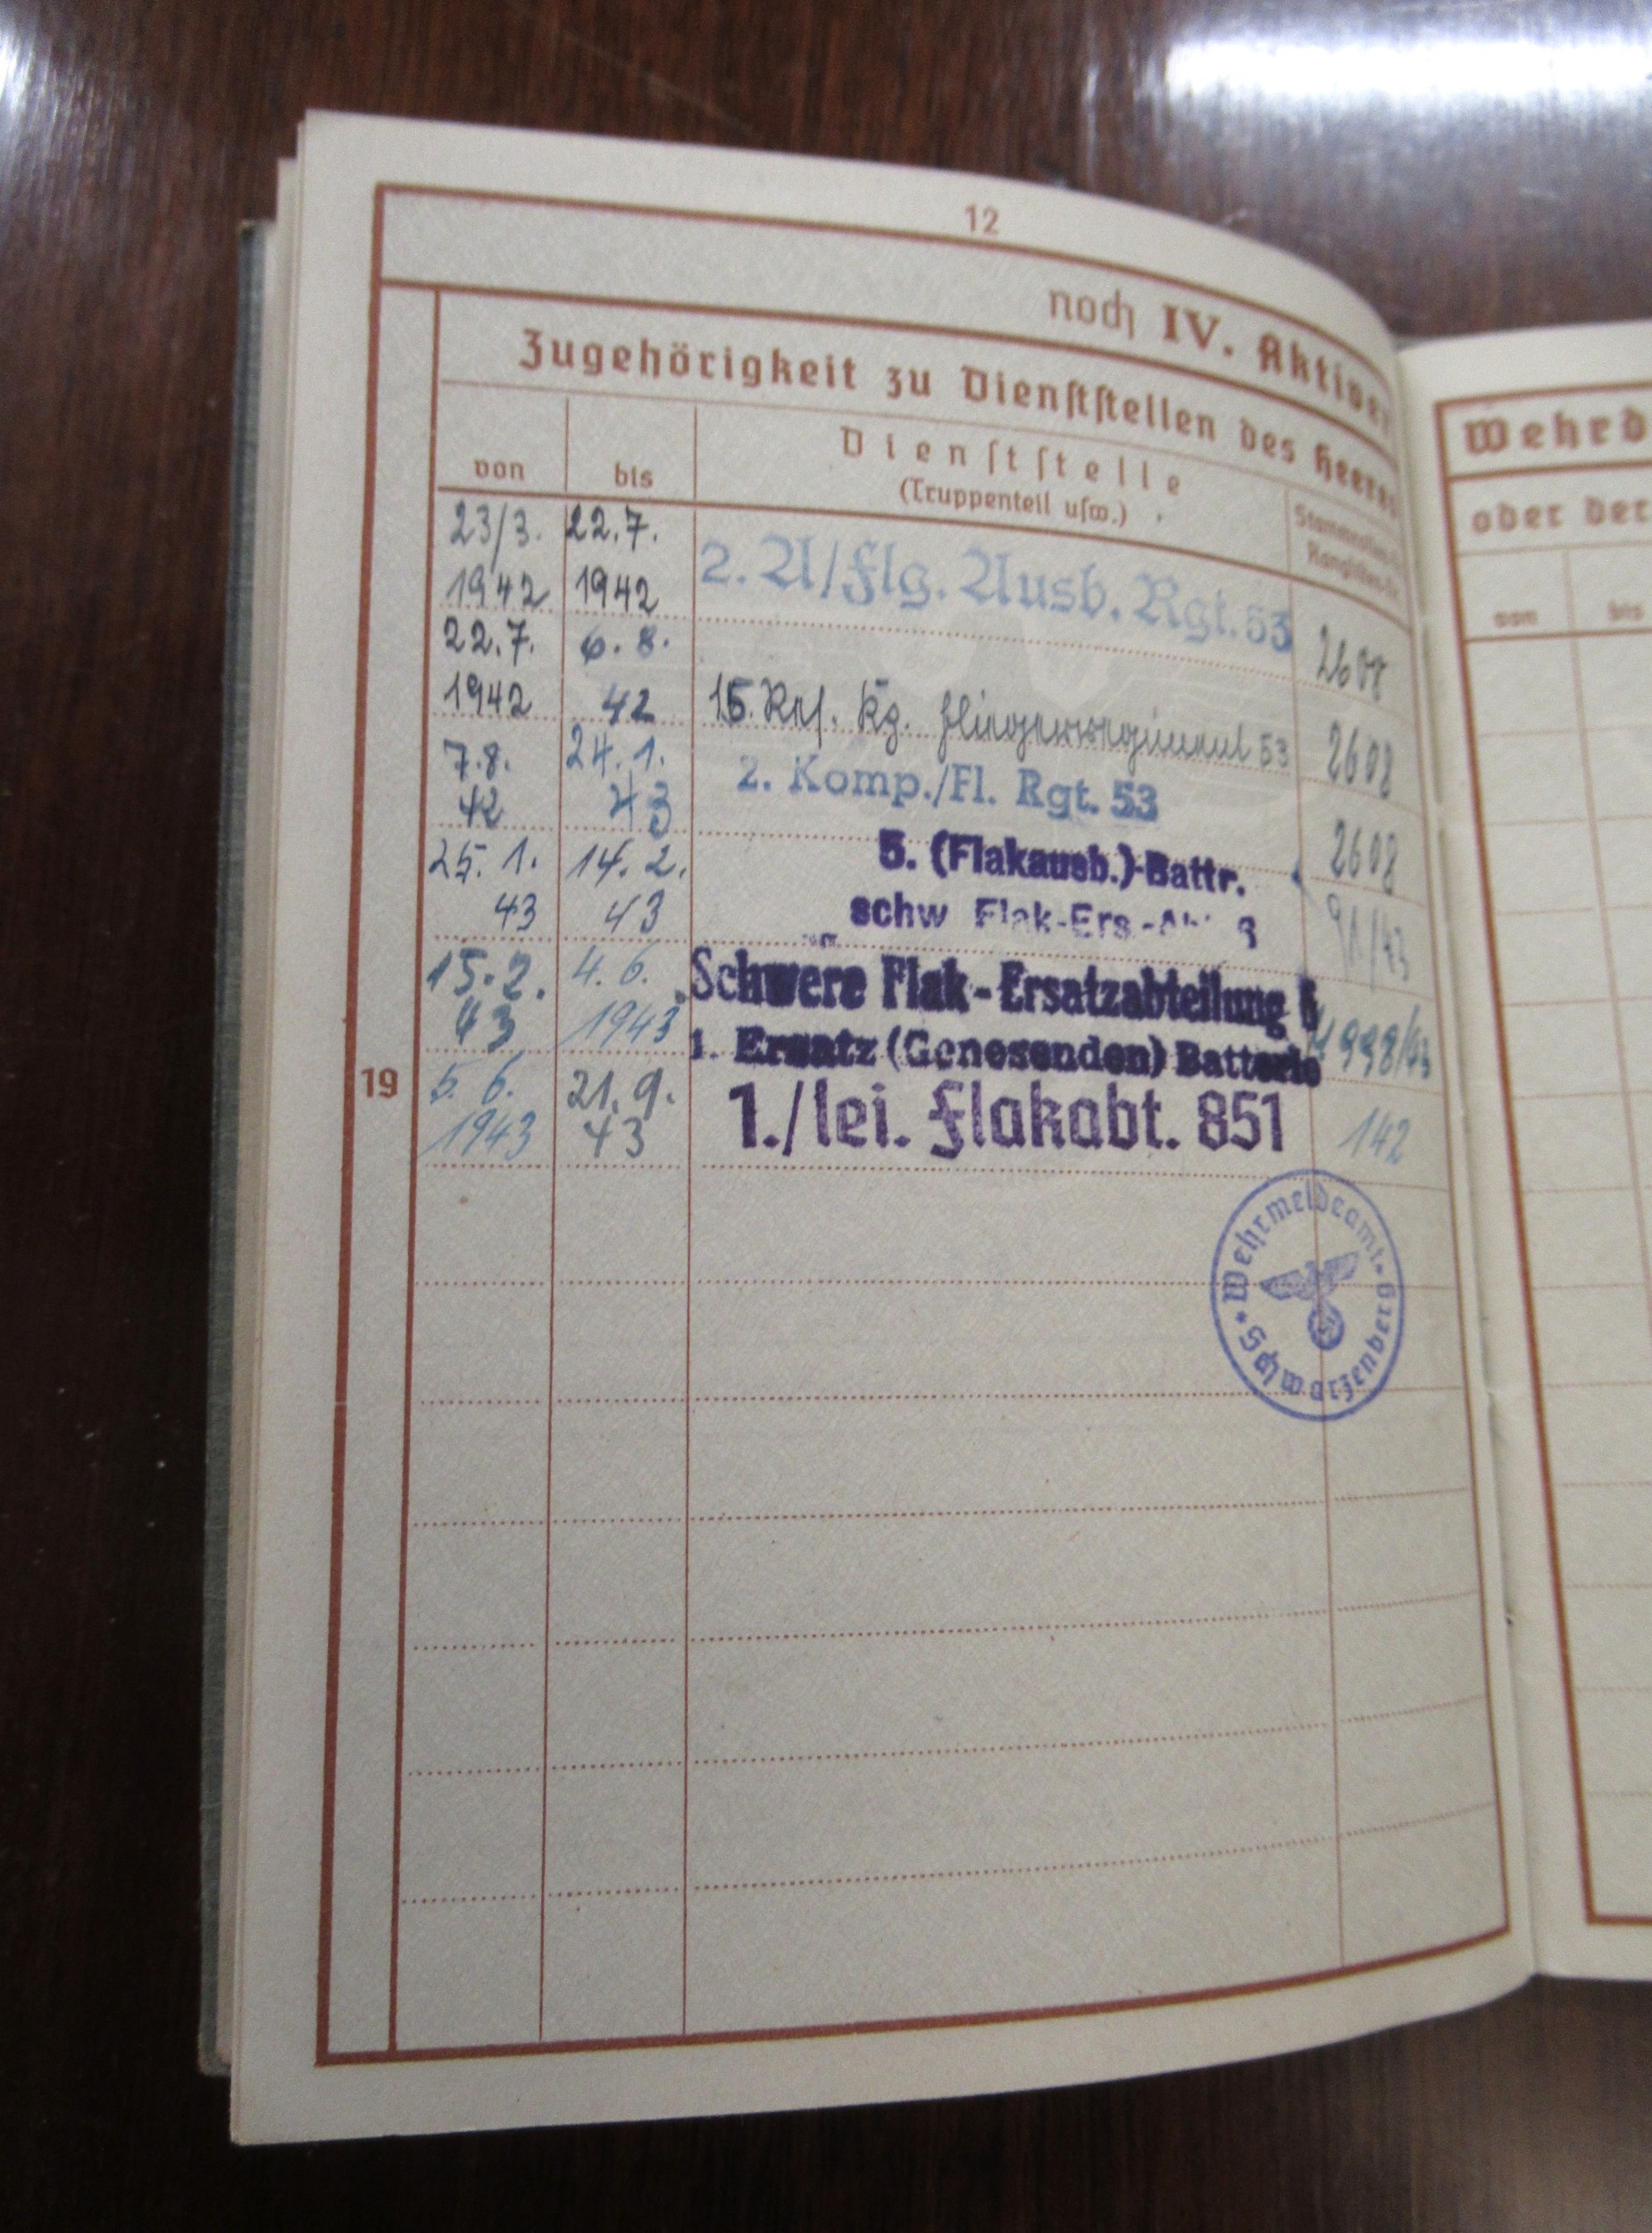 12
noch IV. Aktiver
Zugehörigkeit zu Dienststellen des Heeres
von bis Dienststelle
(Truppenteil usw.)
23/3. 22.7.
1942 1942 2. A/Flg. Ausb. Rgt. 53 2608
22.7. 6.8.
1942 42 15. Kg. Fliegerregiment 53 2608
7.8. 24.1. 2. Komp./Fl. Rgt. 53
42 43 2608
25. 1. 14. 2. 5. (Flakausb.)-Battr.
43 43 schw Flak-Ers.
15. 2. 4. 6. Schwere Flak-Ersatzabteilung
43 1943 1. Ersatz (Genesenden) Batterie
19 5. 6. 21. 9. 1./lei. Flakabt. 851
1943 43 142
Wehrmeldeamt
Schwarzenberg
Wehrd
oder der
von bis